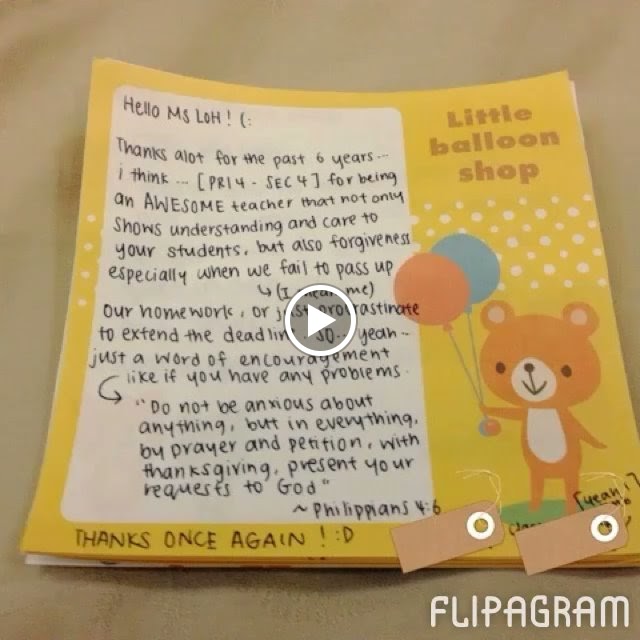 Hello Ms LOH! (:
Thanks alot for the past 6 years...
i think ... [PRI 4 - SEC 4] for being
an AWESOME teacher that not only
shows understanding and care to
your students, but also forgiveness
especially when we fail to pass up
↳(I mean me)
our homework, or just procrastinate
to extend the deadline. so.. yeah..
just a word of encouragement
like if you have any problems.
"Do not be anxious about
anything, but in everything,
by prayer and petition, with
thanksgiving, present your
requests to God"
~ Philippians 4:6
THANKS ONCE AGAIN ! :D
Little
balloon
shop
[yeah!]
FLIPAGRAM